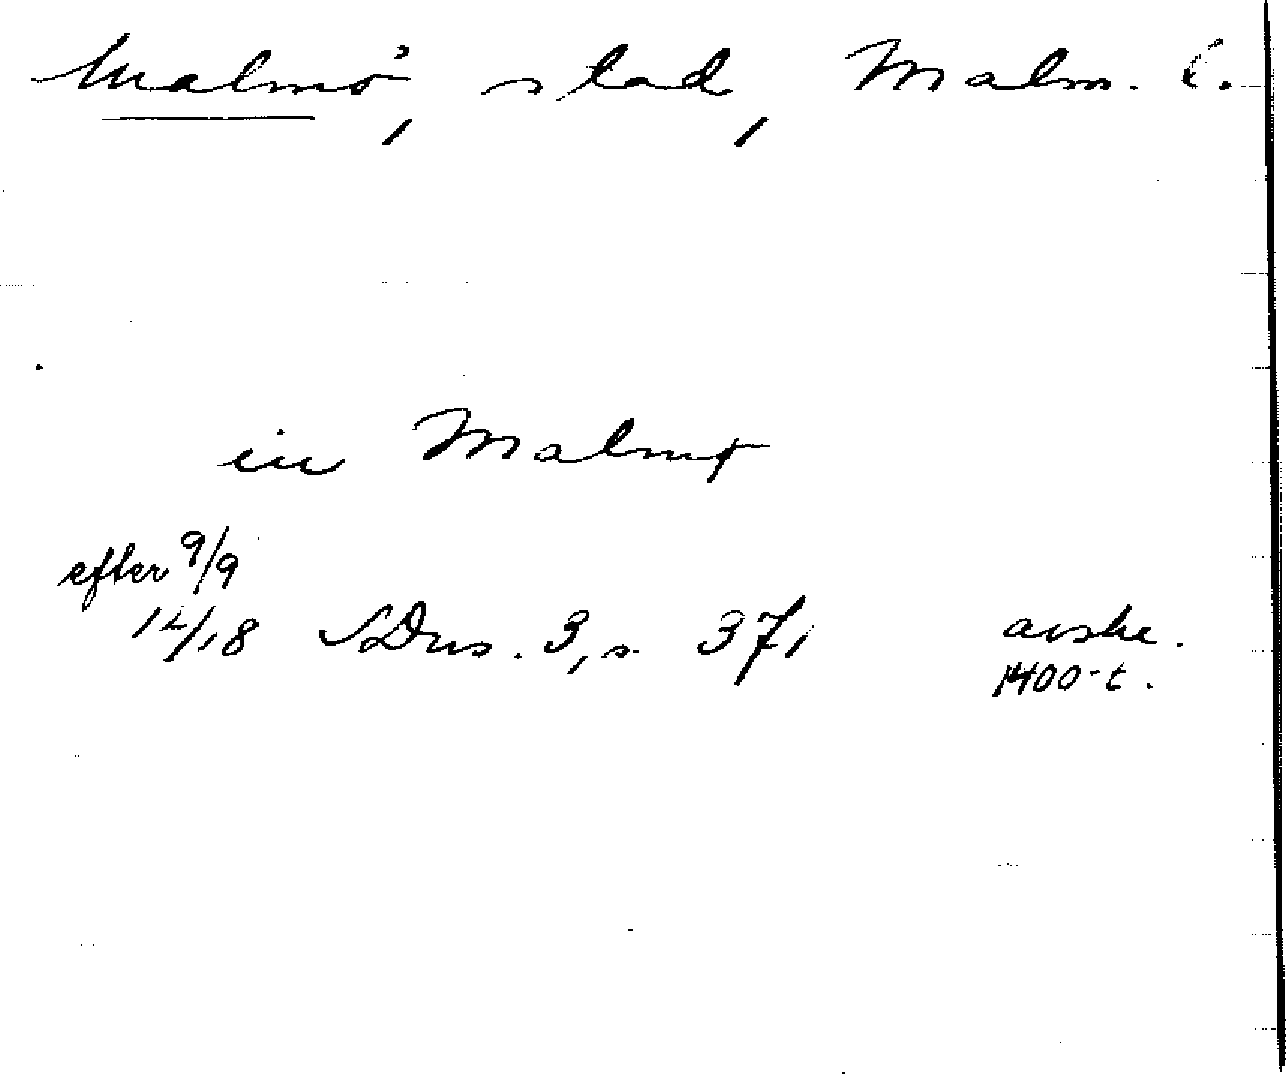 Malmö, stad, Malm. l.
in Malmø
efter 9/9
14/18 SDns. 3, s. 371 avskr.
1400-t.